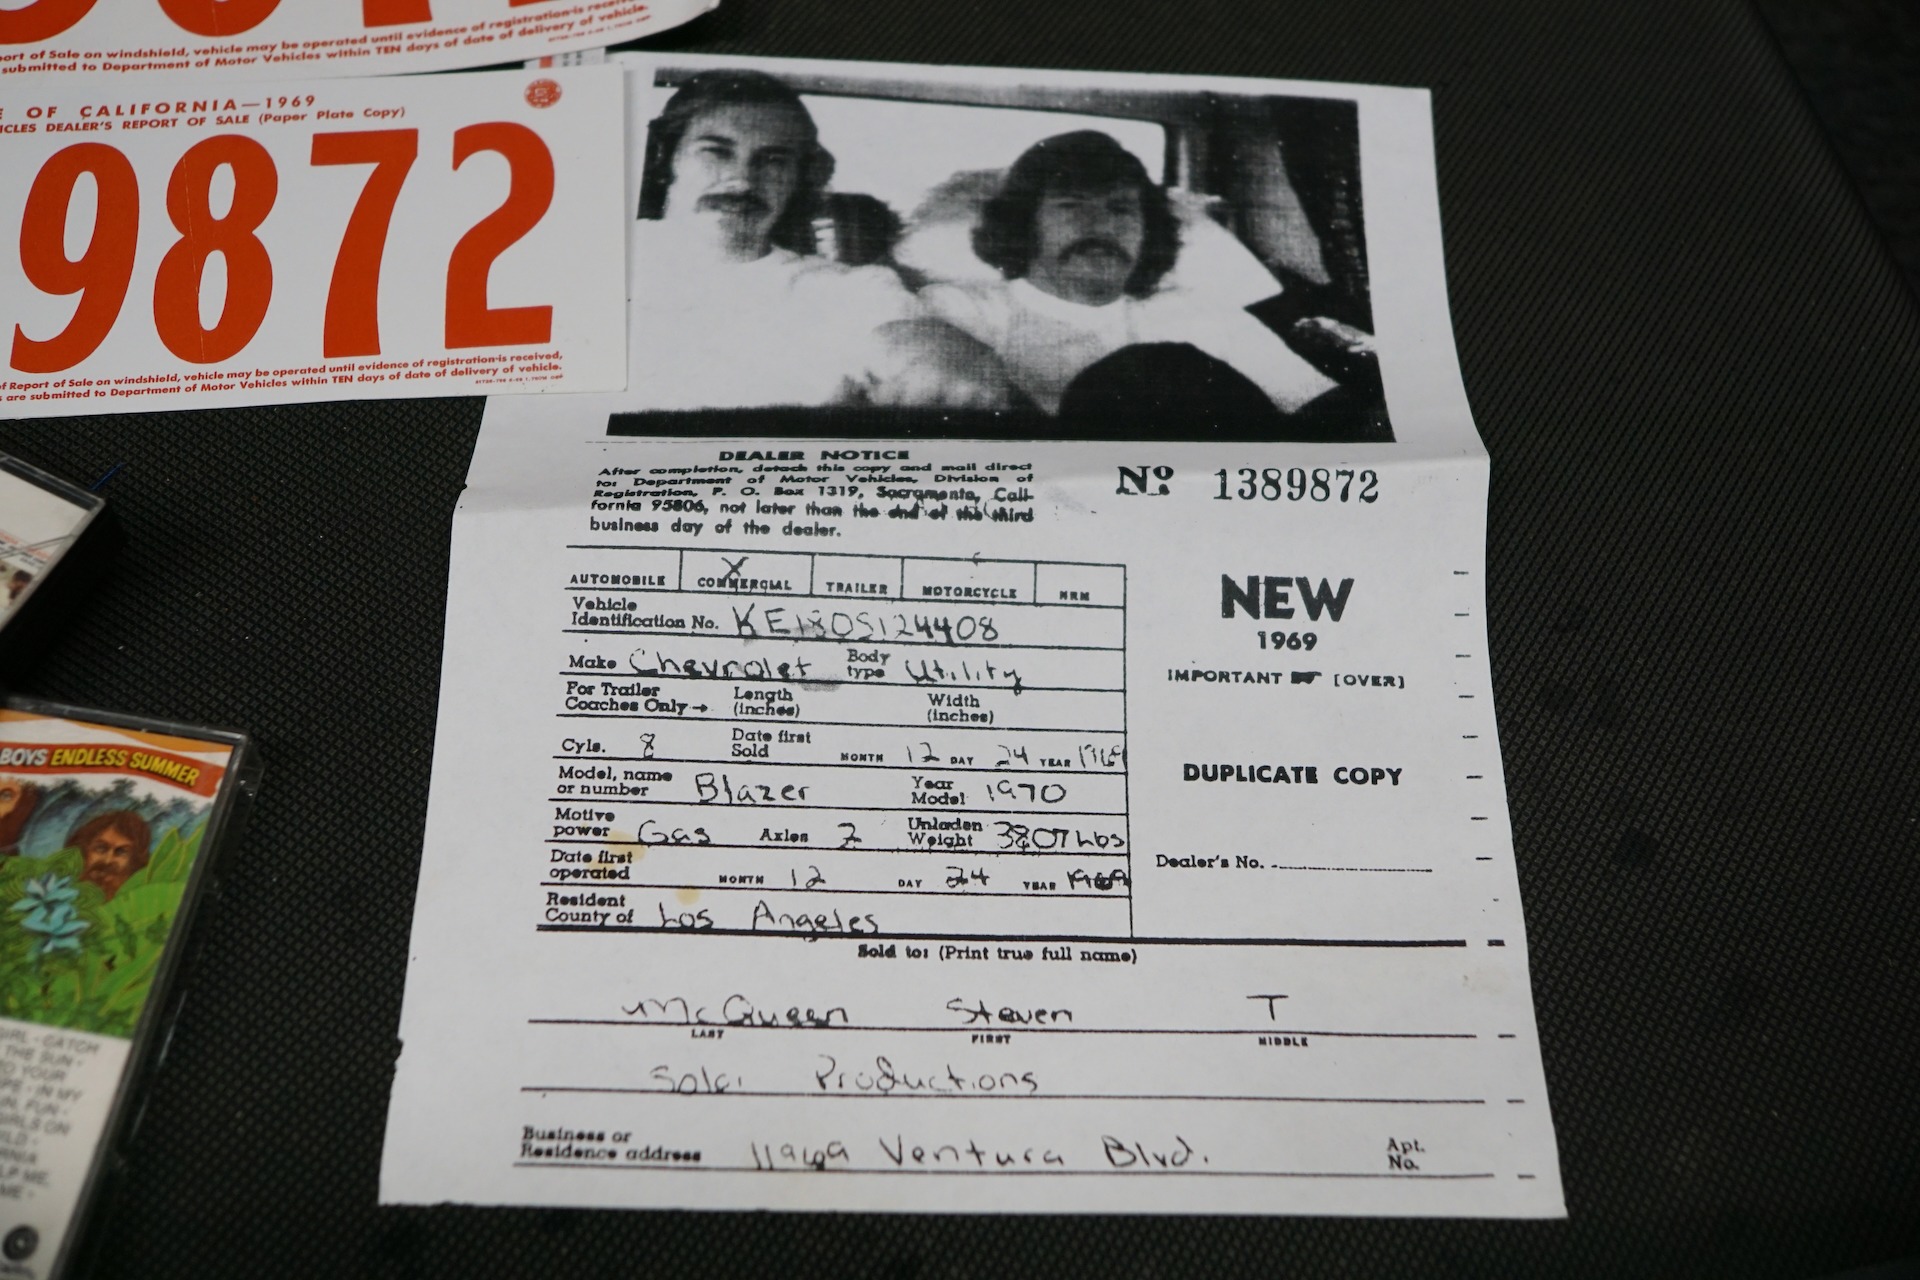 Report of Sale on windshield, vehicle may be operated until evidence of registration is
submitted to Department of Motor Vehicles within TEN days of date of delivery of vehicle.
OF CALIFORNIA—1969
DEALER'S REPORT OF SALE (Paper Plate Copy)
9872
Report of Sale on windshield, vehicle may be operated until evidence of registration is received,
are submitted to Department of Motor Vehicles within TEN days of date of delivery of vehicle.
DEALER NOTICE
After completion, detach this copy and mail direct
to: Department of Motor Vehicles, Division of
Registration, P. O. Box 1319, Sacramento, Cali-
fornia 95806, not later than the end of the third
business day of the dealer.
No 1389872
AUTOMOBILE X COMMERCIAL TRAILER MOTORCYCLE NRM
Vehicle
Identification No. KE180S124408
NEW
1969
Make Chevrolet Body type Utility
IMPORTANT [OVER]
For Trailer Length Width
Coaches Only → (inches) (inches)
Cyls. 8 Date first Sold MONTH 12 DAY 24 YEAR 1969
DUPLICATE COPY
Model, name
or number Blazer Year Model 1970
Motive
power Gas Axles 2 Unladen Weight 3807 Lbs
Date first
operated MONTH 12 DAY 24 YEAR 1969
Dealer's No.
Resident
County of Los Angeles
Sold to: (Print true full name)
McQueen Steven T
LAST FIRST MIDDLE
Solar Productions
Business or
Residence address Ventura Blvd. Apt. No.
BOYS ENDLESS SUMMER
GIRL • CATCH
THE SUN •
YOUR
IN MY
FUN •
GIRLS ON
ME •